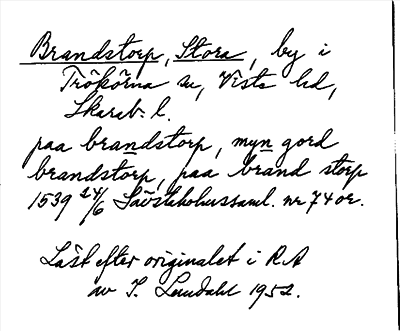 Brandstorp, Stora, by i
Trökörna sn, Viste hd,
Skarab. l.
paa brandstorp, myn gord
brandstorp, paa brand storp
1539 24/6 Sävstaholmssaml. nr 74 or.
Läst efter originalet i RA
av I. Lundahl 1952.